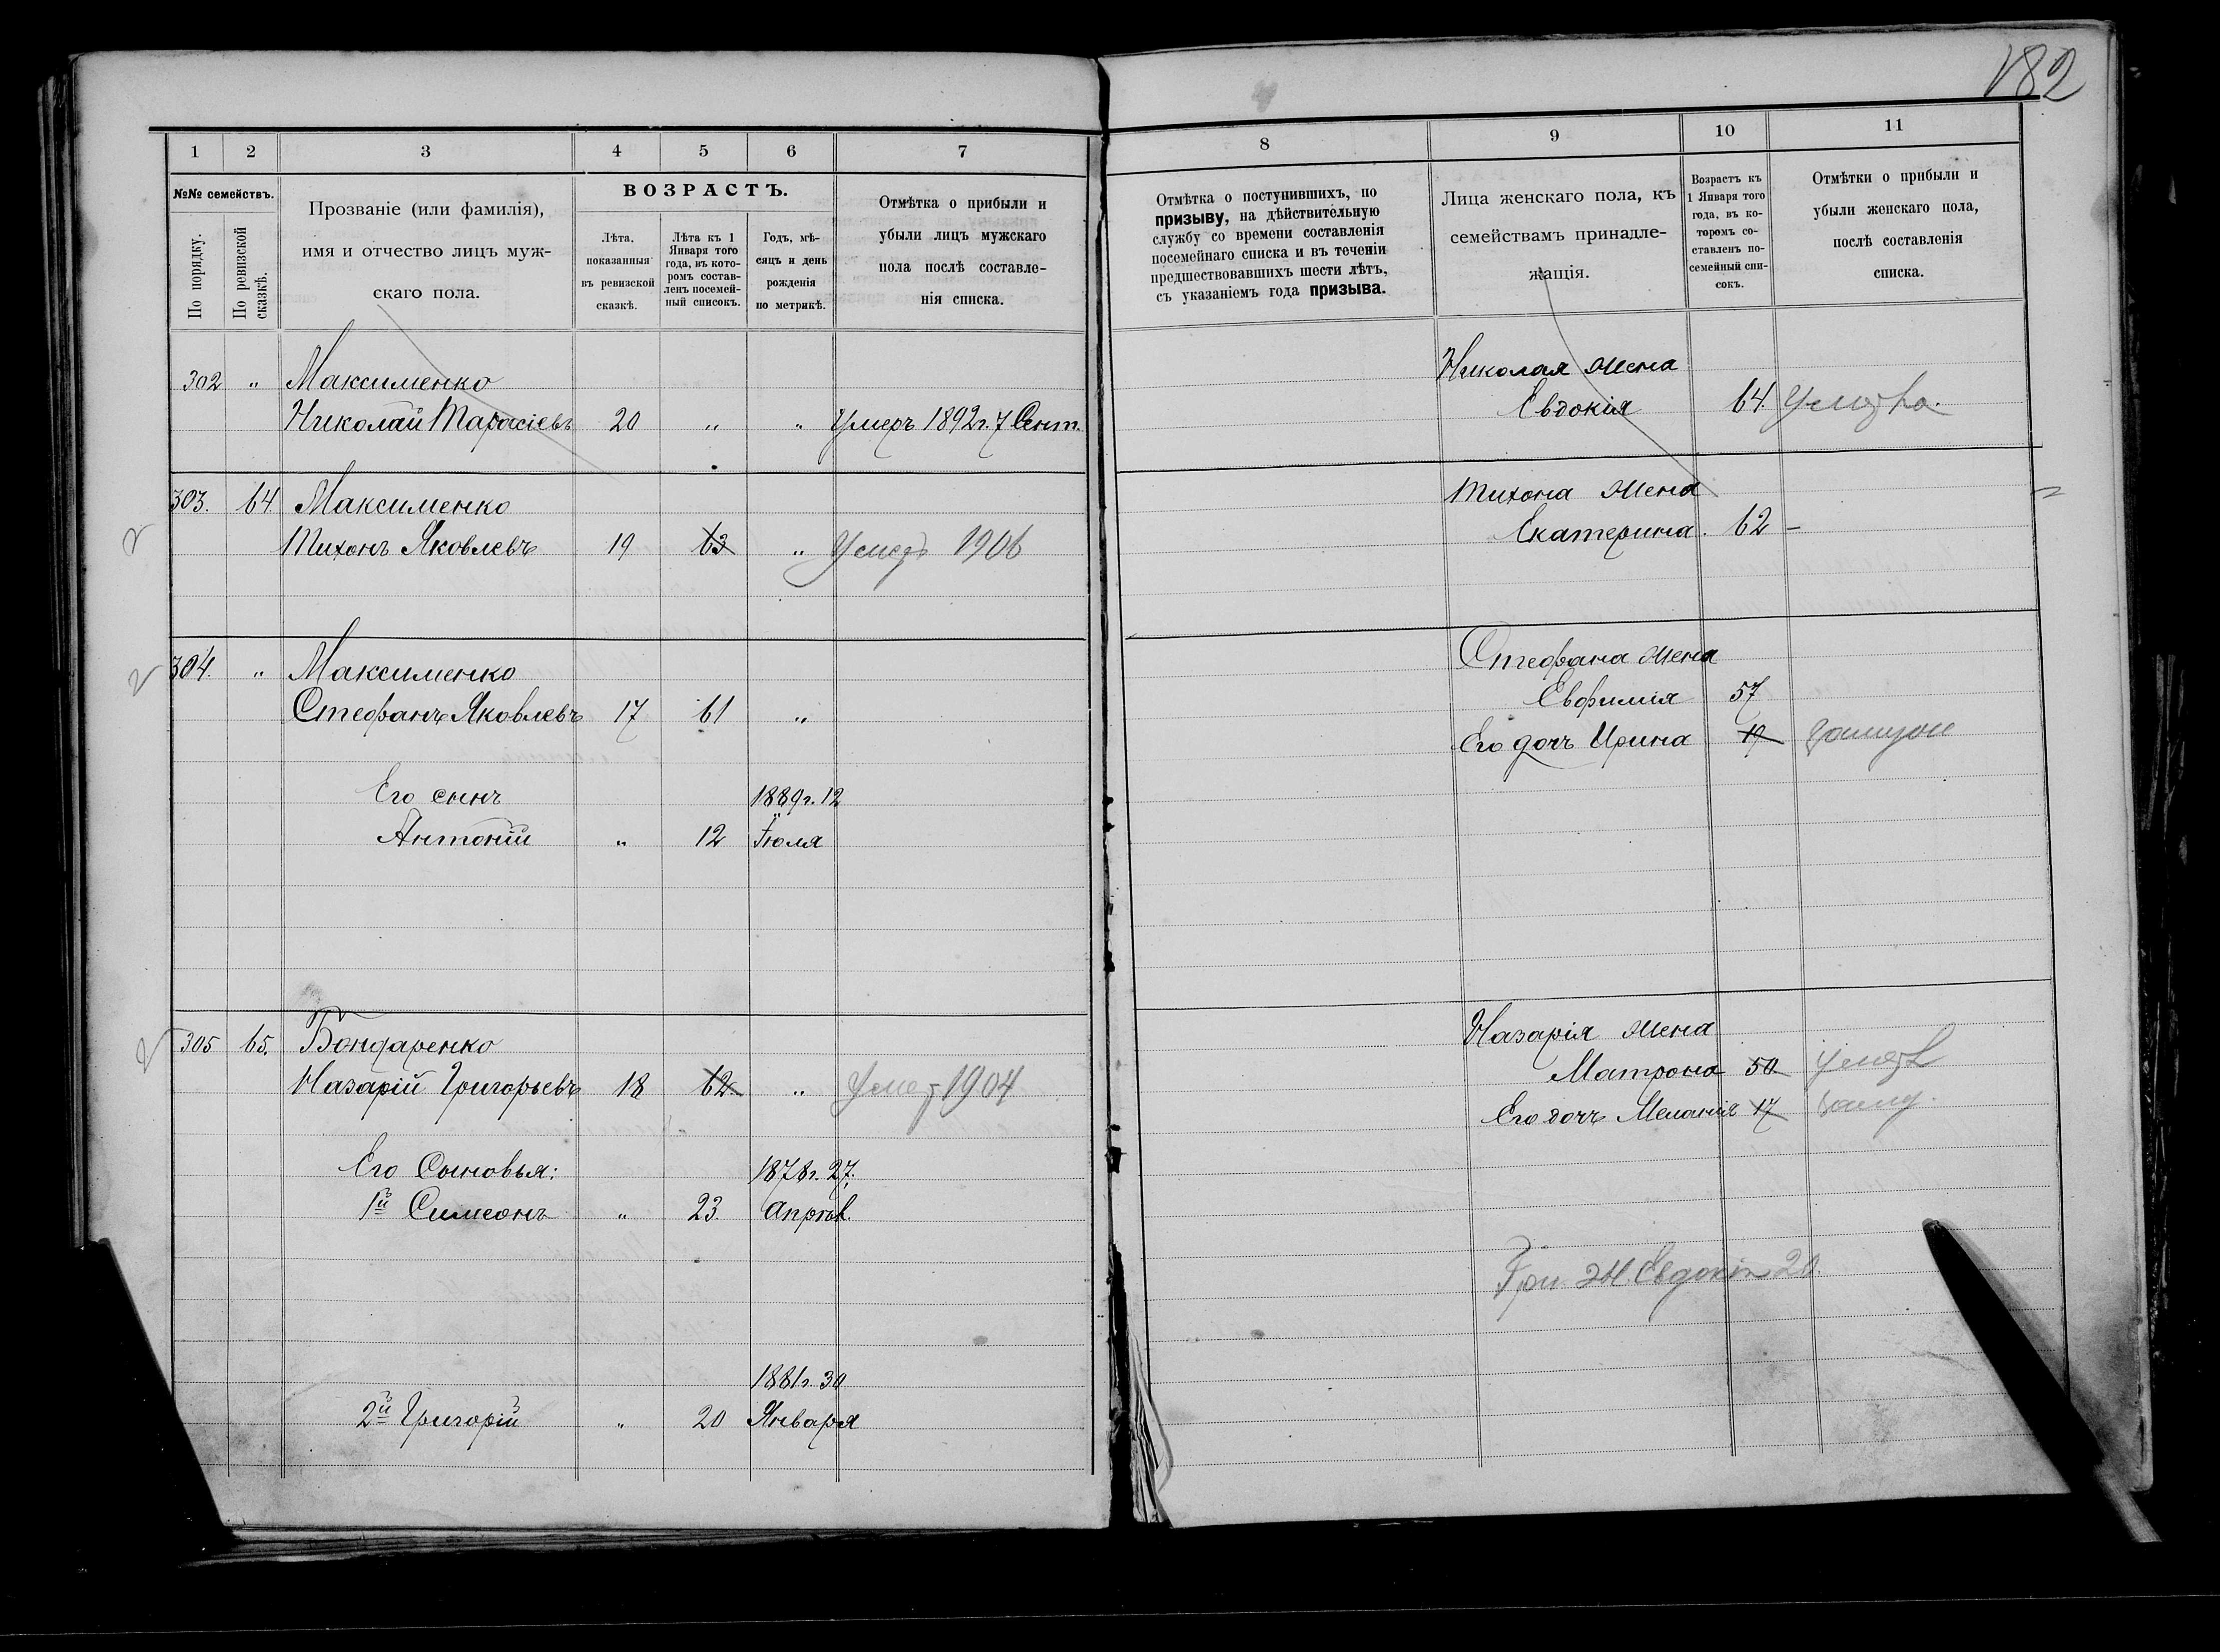 182
1 2 3 4 5 6 7
№№ семействъ.
По порядку.
По ревизской сказкѣ.
Прозваніе (или фамилія),
имя и отчество лицъ муж-
скаго пола.
ВОЗРАСТЪ.
Лѣта,
показанныя
въ ревизской
сказкѣ.
Лѣта къ 1
Января того
года, въ кото-
ромъ состав-
ленъ посемей-
ный списокъ.
Годъ, мѣ-
сяцъ и день
рожденія
по метрикѣ.
Отмѣтка о прибыли и
убыли лицъ мужскаго
пола послѣ составле-
нія списка.
302 " Максименко
Николай Тарасіевъ 20 " " Умеръ 1892г. 7 Сент.
303. 64. Максименко
Тихонъ Яковлевъ 19 63 " Умеръ 1906
304. " Максименко
Стефанъ Яковлевъ 17 61 "
Его сынъ 1889г. 12
Антоній " 12 Іюля
305 65. Бондаренко
Назарій Григорьевъ 18 62 " Умер 1904
Его Сыновья: 1878г. 27.
1й Симеонъ " 23. Апрѣл.
1881г. 30
2й Григорій " 20 Января
8 9 10 11
Отмѣтка о поступившихъ, по
призыву, на дѣйствительную
службу со времени составленія
посемейнаго списка и въ теченіи
предшествовавшихъ шести лѣтъ,
съ указаніемъ года призыва.
Лица женскаго пола, къ
семействамъ принадле-
жащія.
Возрастъ къ
1 Января того
года, въ ко-
торомъ со-
ставленъ по-
семейный спи-
сокъ.
Отмѣтки о прибыли и
убыли женскаго пола,
послѣ составленія
списка.
Николая жена
Евдокія 64. Умерла.
Тихона жена
Екатерина. 62 -
Стефана жена
Евфимія 57
Его дочь Ирина 19 замужн
Назарія жена
Матрона 50
Его дочь Меланія 17 заму.
Гри. ж. Евдокія 20.